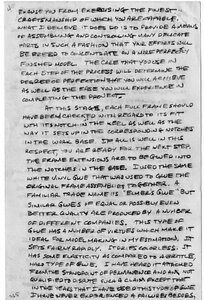 EXCUSE YOU FROM EXERCISING THE FINEST
CRAFTSMANSHIP OF WHICH YOU ARE CAPABLE.
WHAT I BELIEVE IT DOES DO IS TO PROVIDE A MEANS
OF ASSEMBLING AND CONTROLLING MANY DELICATE
PARTS IN SUCH A FASHION THAT THE EFFORTS WILL
BE FREED TO CONCENTRATE ON A MORE
FINISHED MODEL. THE CARE THAT YOU USE IN
EACH STEP OF THE PROCESS WILL DETERMINE THE
DEGREE OF PERFECTION THAT YOU WILL ACHIEVE
AS WELL AS THE EASE YOU WILL EXPERIENCE IN
COMPLETING THE PROJECT.
AT THIS STAGE, EACH FULL FRAME SHOULD
HAVE BEEN CHECKED WITH REGARD TO ITS FIT
WITH ITS NOTCH IN THE KEEL AS WELL AS THE
WAY IT SETS UP IN THE CORRESPONDING NOTCHES
IN THE WORK BASE. IF ALL IS WELL IN THIS
RESPECT YOU ARE READY FOR THE NEXT STEP.
THE FRAME EXTENSIONS ARE TO BE GLUED INTO
THE NOTCHES IN THE BASE. I USED THE SAME
WHITE VINYL GLUE THAT WAS USED TO GLUE THE
ORIGINAL FRAME ASSEMBLIES TOGETHER. A
FAMILIAR TRADE NAME IS "ELMERS GLUE" BUT
SIMILAR GLUES OF EQUAL OR POSSIBLY EVEN
BETTER QUALITY ARE PRODUCED BY A NUMBER
OF DIFFERENT COMPANIES. THIS TYPE OF
GLUE HAS A NUMBER OF VIRTUES WHICH MAKE IT
IDEAL FOR MODEL MAKING IN MY ESTIMATION. IT
SETS FAIRLY RAPIDLY. IT DRIES COLORLESS. IT
HAS SOME ELASTICITY AS COMPARED TO A BRITTLE,
TYPE OF GLUE. I HAVE HEARD IT ATTACKED
FROM THE STANDPOINT OF PERMANENCE AND AM NOT
QUALIFIED TO DISPUTE SUCH A CLAIM EXCEPT THAT
IN THE YEARS THAT I HAVE USED THIS TYPE OF GLUE
I HAVE NEVER EXPERIENCED A FAILURE. BESIDES,